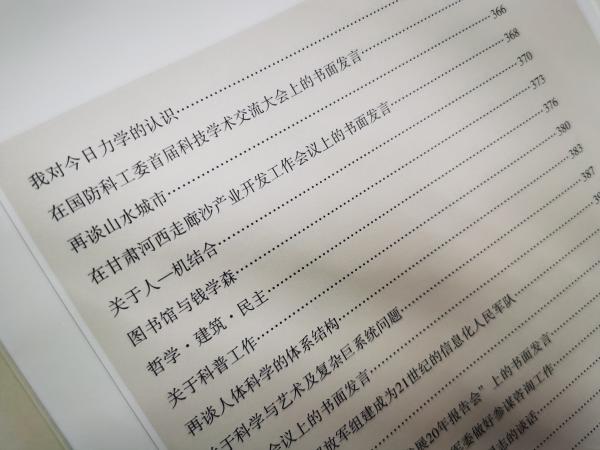 我对今日力学的认识
在国防科工委首届科技学术交流大会上的书面发言 366
再谈山水城市 368
在甘肃河西走廊沙产业开发工作会议上的书面发言 370
关于人—机结合 373
图书馆与钱学森 376
哲学·建筑·民主 380
关于科普工作 383
再谈人体科学的体系结构 387
关于科学与艺术及复杂巨系统问题
会议上的书面发言
放军组建成为21世纪的信息化人民军队
展20年报告会”上的书面发言
军委做好参谋咨询工作
同志的谈话